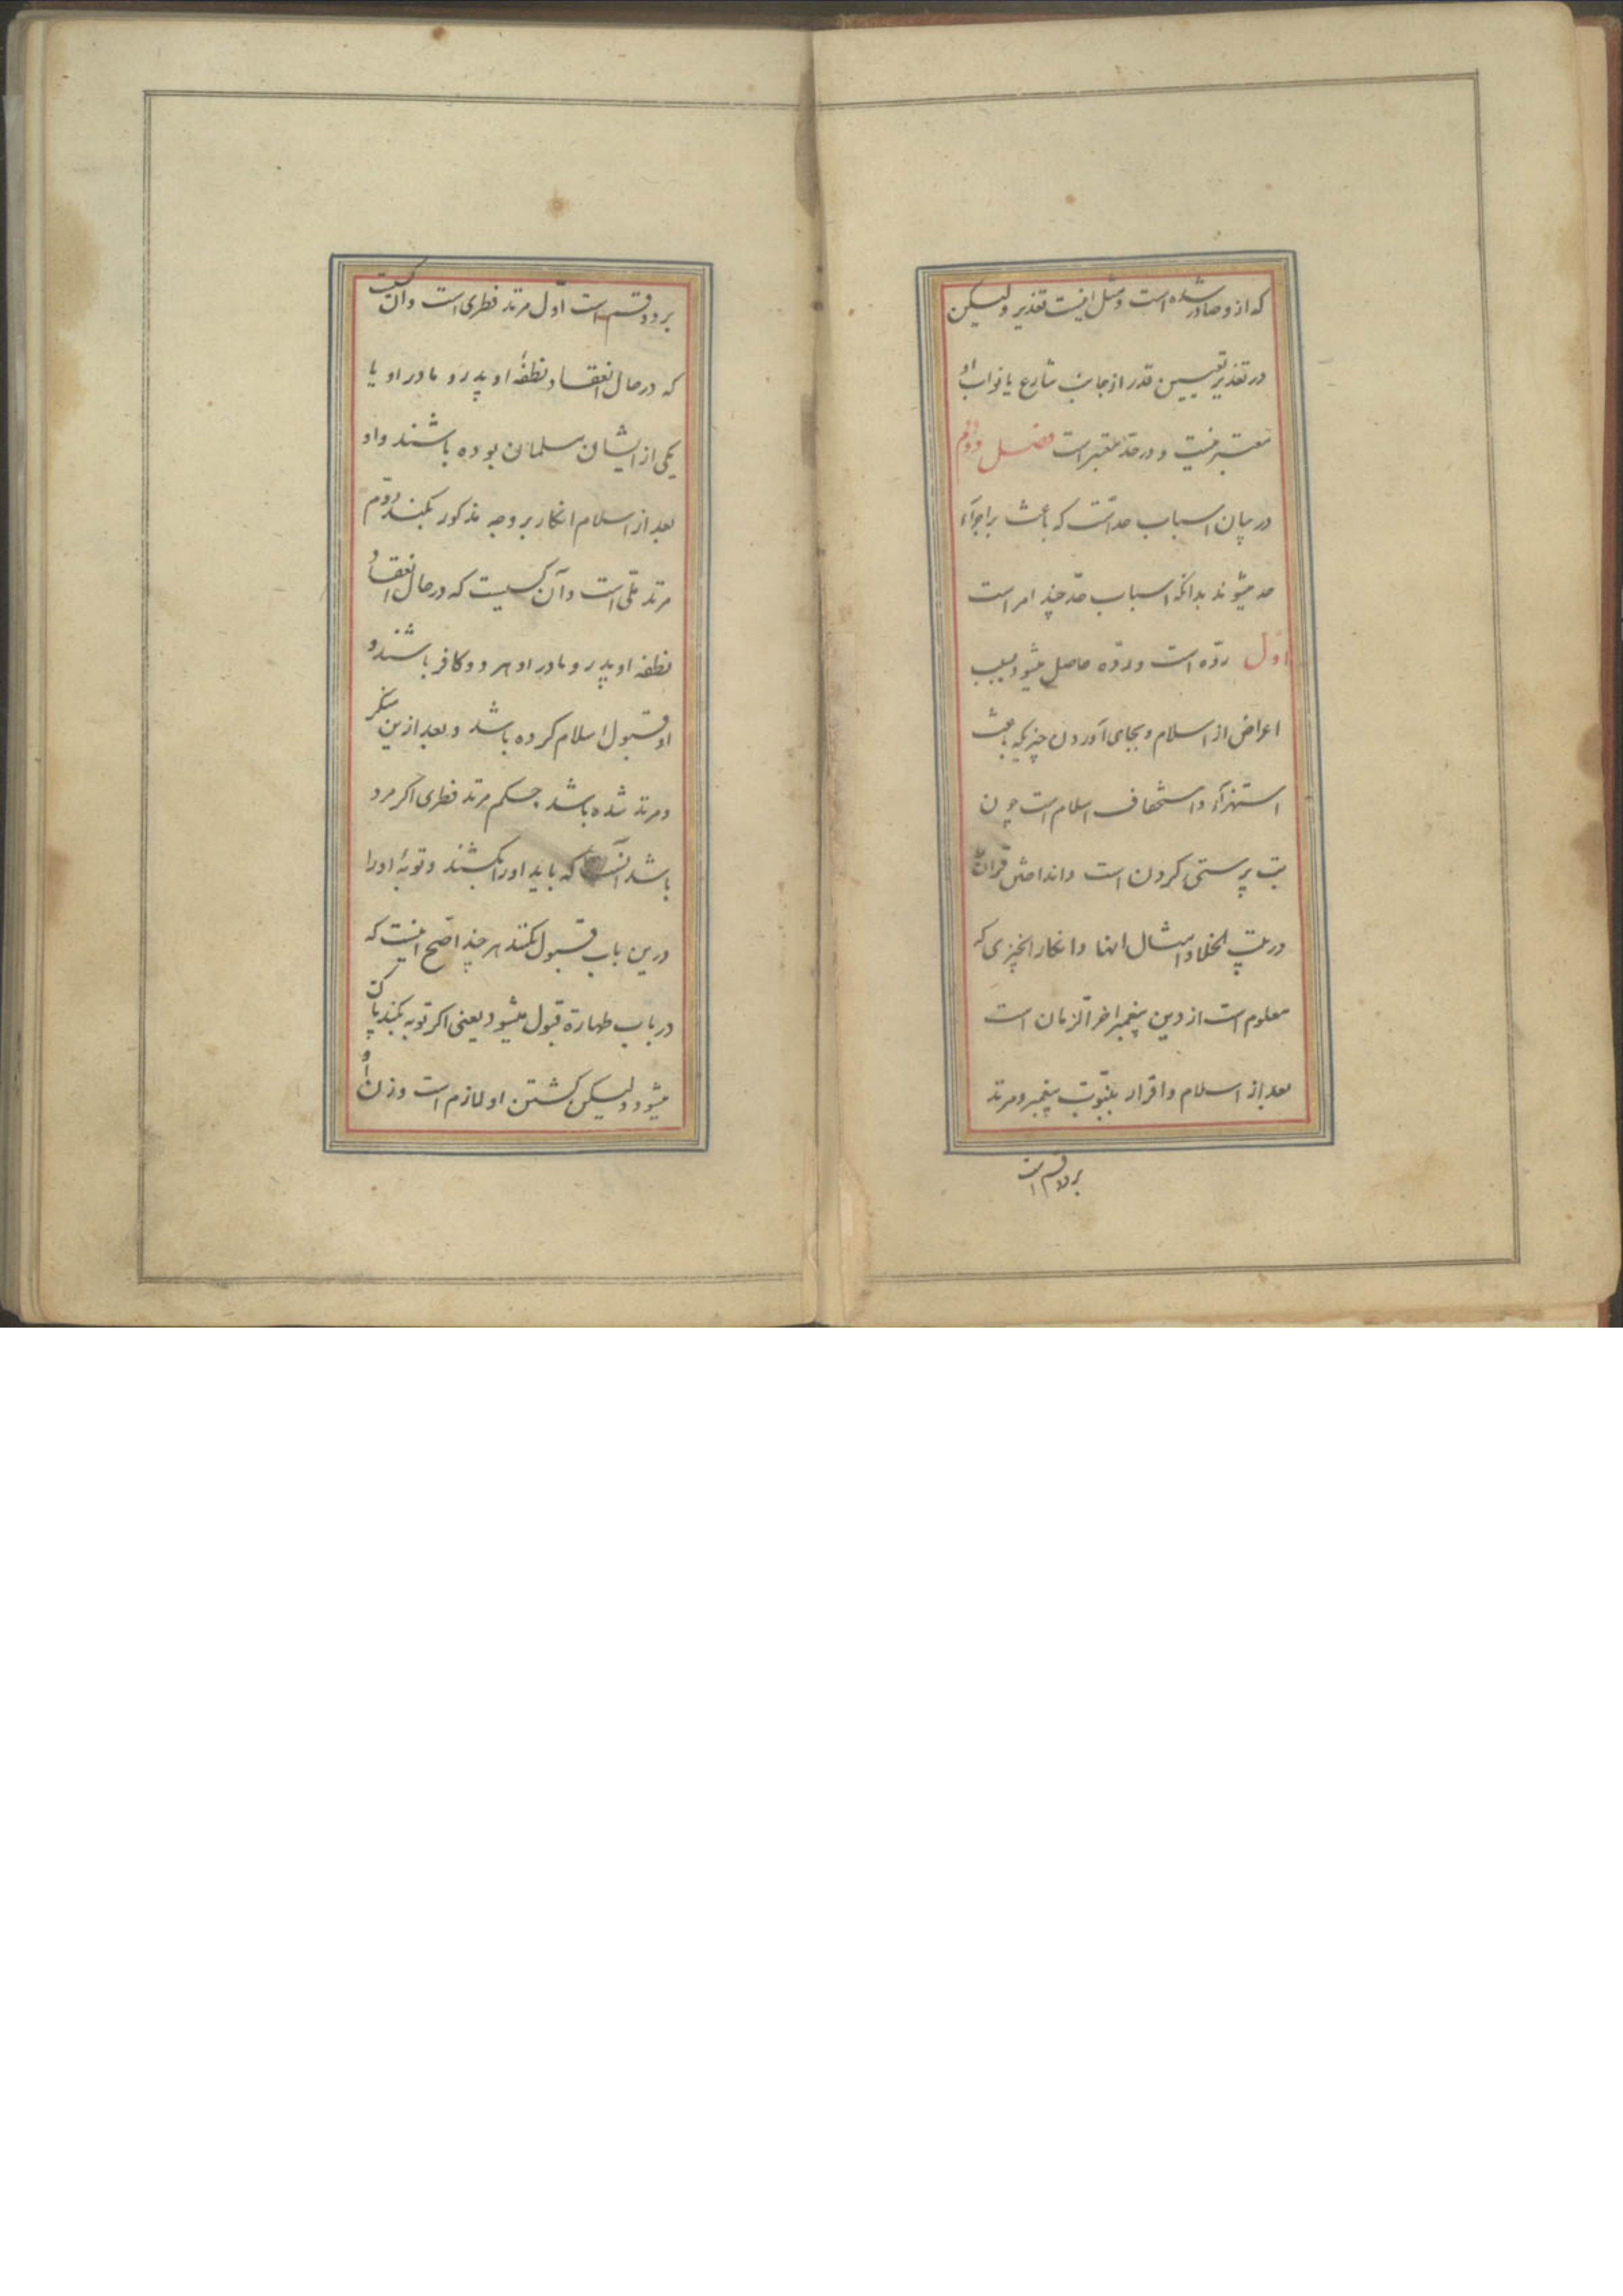 که ازو صادر شده است و مثل اینست تعذیر ولیکن
در تعذیر تعیین قدر از جانب شارع یا نواب او
معتبر نیست و در حد معتبر است فصل دوم
در بیان اسباب حد است که باعث بر اجرآء
حد میشوند بدانکه اسباب حد چند امر است
اول ردّه است و ردّه حاصل میشود بسبب
اعراض از اسلام و بجای آوردن چیزیکه باعث
استهزآء و استخفاف اسلام است چون
بت پرستی کردن است و انداختن قرآن
در بیت الخلا و امثال اینها و انکار چیزی که
معلوم است از دین پیغمبر اخر الزمان است
بعد از اسلام و اقرار بنبوّت پیغمبر و مرتد
بر دو قسم است
بر دو قسم است اوّل مرتد فطری است و آن کسیست
که در حال انعقاد نطفهٔ او پدر و مادر او یا
یکی از ایشان مسلمان بوده باشند و او
بعد از اسلام انکار بر وجه مذکور بکند دوّم
مرتد ملّی است و آن کسیست که در حال انعقاد
نطفه او پدر و مادر او هر دو کافر باشند و
او قبول اسلام کرده باشد و بعد ازین منکر
و مرتد شده باشد حکم مرتد فطری اکر مرد
باشد آنست که باید او را بکشند و توبهٔ او را
درین باب قبول نکنند هر چند اصّح اینست که
در باب طهارة قبول میشود یعنی اکر توبه بکند پاک
میشود ولیکن کشتن او لازم است و زن او